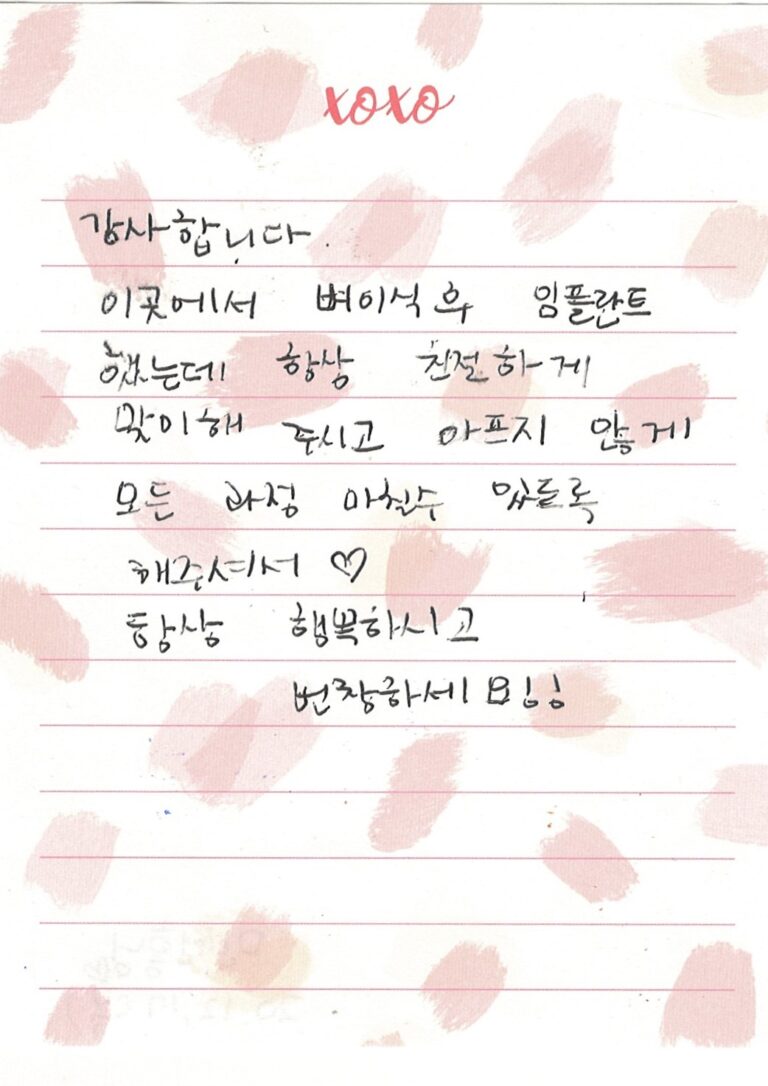 xoxo
감사합니다.
이곳에서 뼈이식후 임플란트
했는데 항상 친절하게
맞이해 주시고 아프지 않게
모든 과정 마칠수 있도록
해주셔서 ♡
항상 행복하시고
번창하세요!!